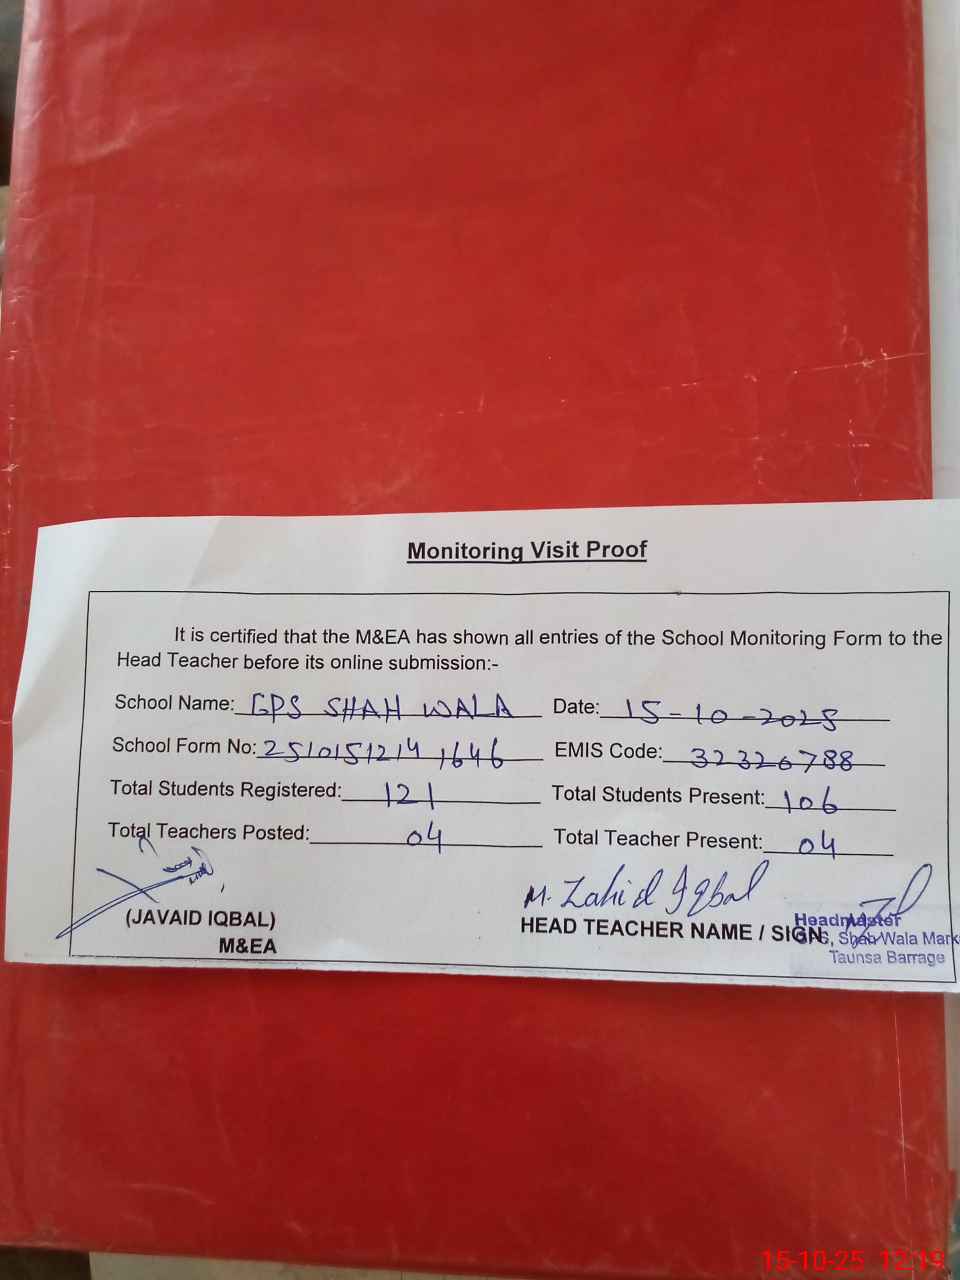 Monitoring Visit Proof
It is certified that the M&EA has shown all entries of the School Monitoring Form to the
Head Teacher before its online submission:-
School Name: GPS SHAH WALA Date: 15-10-2025
School Form No: 2510151214 1646 EMIS Code: 32320788
Total Students Registered: 121 Total Students Present: 106
Total Teachers Posted: 04 Total Teacher Present: 04
M. Zahid Iqbal
(JAVAID IQBAL) HEAD TEACHER NAME / SIGN:
M&EA
Headmaster
GPS, Shah Wala
Taunsa Barrage
15-10-25 12:19